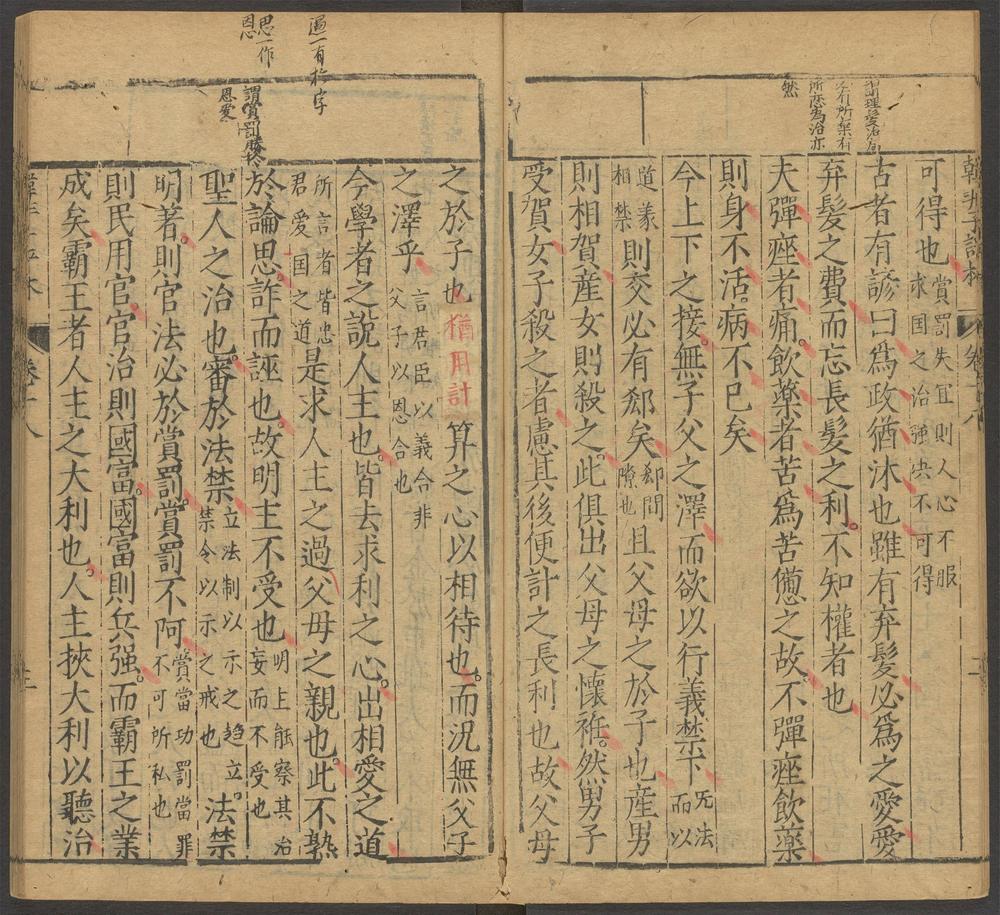 韓非子評林 卷十八 二
可得也 賞罰失宜則人心不服求国之治強决不可得
古者有諺曰爲政猶沐也雖有弃髮必爲之愛愛
弃髮之費而忘長髮之利不知權者也
夫彈痤者痛飲藥者苦爲苦憊之故不彈痤飲藥
則身不活病不已矣
今上下之接無子父之澤而欲以行義禁下 旡法而以
道義相禁 則交必有郄矣 郄間隙也 且父母之於子也産男
則相賀産女則殺之此俱出父母之懷袵然男子
受賀女子殺之者慮其後便計之長利也故父母
之於子也猶用計算之心以相待也而況無父子
之澤乎 言君臣以義合非父子以恩合也
今學者之說人主也皆去求利之心出相愛之道
所言者皆忠君愛国之道 是求人主之過父母之親也此不熟
於論思詐而誣也故明主不受也 明上能察其治妄而不受也
聖人之治也審於法禁 立法制以示之趋立禁令以示之戒也 法禁
明著則官法必於賞罰賞罰不阿 賞當功罰當罪不可所私也
則民用官官治則國富國富則兵强而霸王之業
成矣霸王者人主之大利也人主挾大利以聽治
過一有於字
思一作恩
謂賞罰勝恩愛